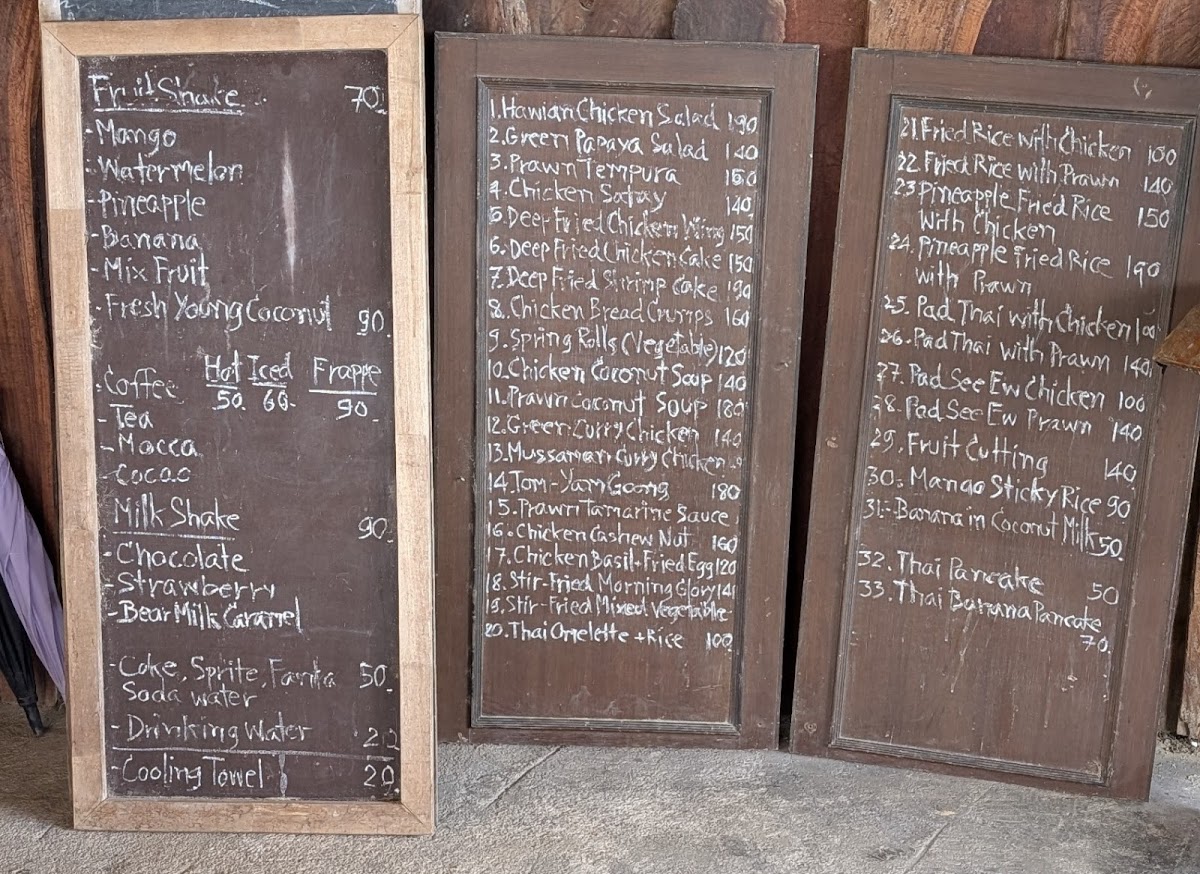 Fruit Shake 70.
-Mango
-Watermelon
-Pineapple
-Banana
-Mix Fruit
-Fresh Young Coconut 90.
Hot Iced Frappe
-Coffee 50. 60. 90.
-Tea
-Mocca
-Cocao
Milk Shake 90.
-Chocolate
-Strawberry
-Bear Milk Caramel
-Coke, Sprite, Fanta 50.
Soda water
-Drinking Water 20
-Cooling Towel 20.
1. Hawian Chicken Salad 190
2. Green Papaya Salad 140
3. Prawn Tempura 150
4. Chicken Satay 140
5. Deep Fried Chicken Wing 150
6. Deep Fried Chicken Cake 150
7. Deep Fried Shrimp Cake 190
8. Chicken Bread Crumps 160
9. Spring Rolls (Vegetable) 120
10. Chicken Coconut Soup 140
11. Prawn Coconut Soup 180
12. Green Curry Chicken 140
13. Mussaman Curry Chicken
14. Tom-Yam Goong 180
15. Prawn Tamarine Sauce
16. Chicken Cashew Nut 160
17. Chicken Basil+Fried Egg 120
18. Stir-Fried Morning Glory
19. Stir-Fried Mixed Vegetable
20. Thai Omelette + Rice 100
21. Fried Rice with Chicken 100
22. Fried Rice with Prawn 140
23. Pineapple Fried Rice 150
With Chicken
24. Pineapple Fried Rice 190
with Prawn
25. Pad Thai with Chicken 100
26. Pad Thai with Prawn 140
27. Pad See Ew Chicken 100
28. Pad See Ew Prawn 140
29. Fruit Cutting 140
30. Mango Sticky Rice 90
31.-Banana in Coconut Milk 50.
32. Thai Pancake 50
33. Thai Banana Pancake
70.